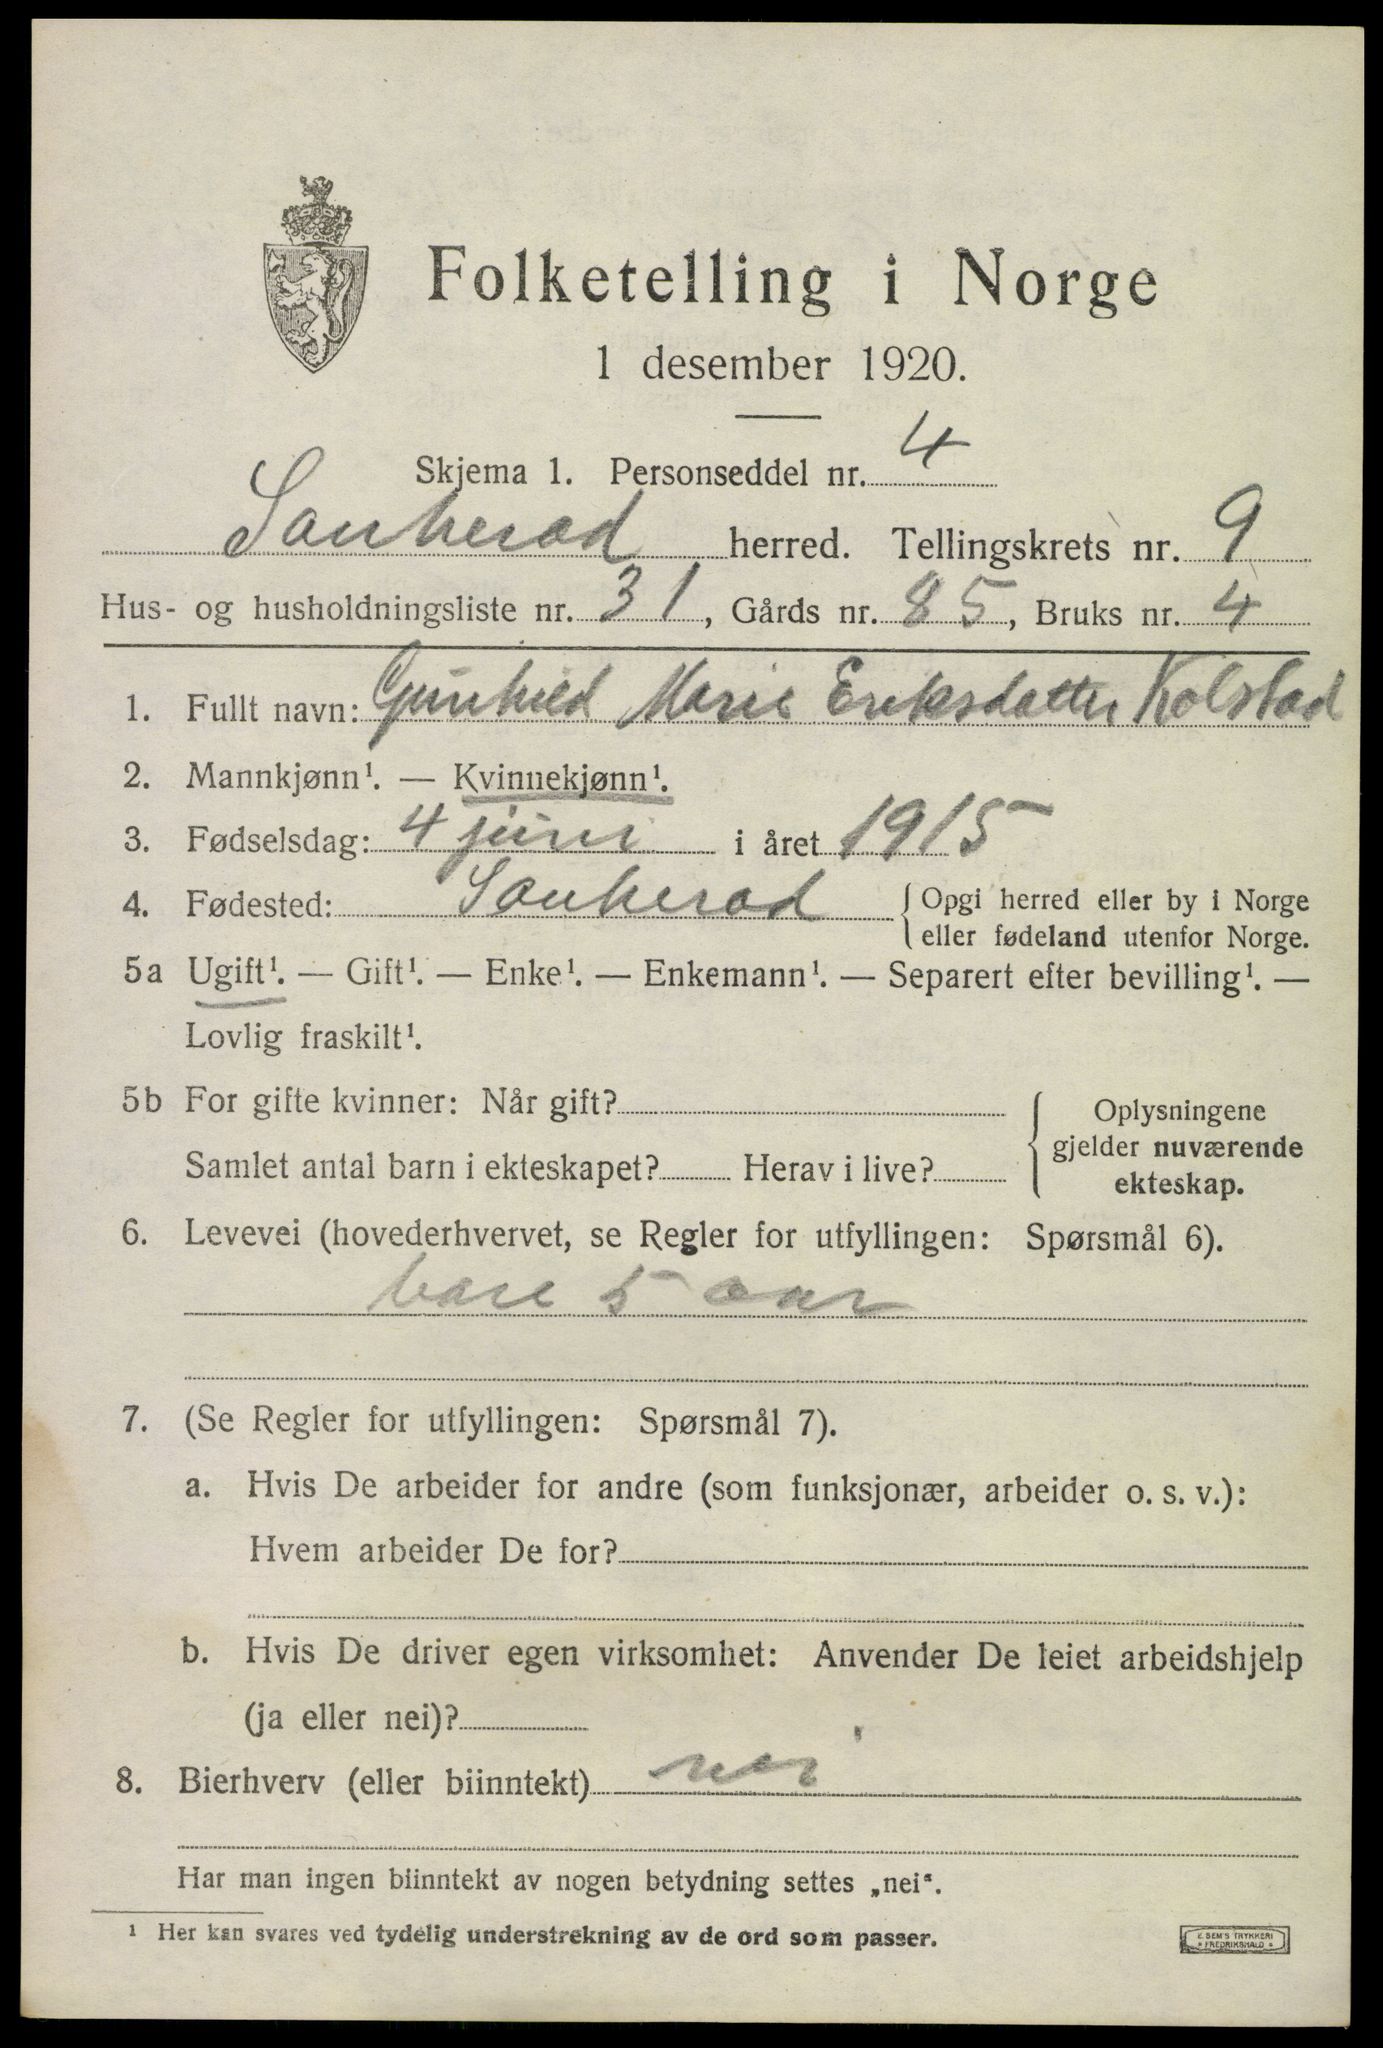 Folketelling i Norge
1 desember 1920.
Skjema 1. Personseddel nr. 4
Sauherad herred. Tellingskrets nr. 9
Hus- og husholdningsliste nr. 31, Gårds nr. 85, Bruks nr. 4
1. Fullt navn: Gunhild Marie Eriksdatter Kolstad
2. Mannkjønn¹. — Kvinnekjønn¹.
3. Fødselsdag: 4 juni i året 1915
4. Fødested: Sauherad { Opgi herred eller by i Norge
eller fødeland utenfor Norge.
5a Ugift¹. — Gift¹. — Enke¹. — Enkemann¹. — Separert efter bevilling¹. —
Lovlig fraskilt¹.
5b For gifte kvinner: Når gift?
Samlet antal barn i ekteskapet? Herav i live?
Oplysningene
gjelder nuværende
ekteskap.
6. Levevei (hovederhvervet, se Regler for utfyllingen: Spørsmål 6).
bare 5 aar
7. (Se Regler for utfyllingen: Spørsmål 7).
a. Hvis De arbeider for andre (som funksjonær, arbeider o. s. v.):
Hvem arbeider De for?
b. Hvis De driver egen virksomhet: Anvender De leiet arbeidshjelp
(ja eller nei)?
8. Bierhverv (eller biinntekt) nei
Har man ingen biinntekt av nogen betydning settes „nei“.
¹ Her kan svares ved tydelig understrekning av de ord som passer.
E. SEM'S TRYKKERI
FREDRIKSHALD